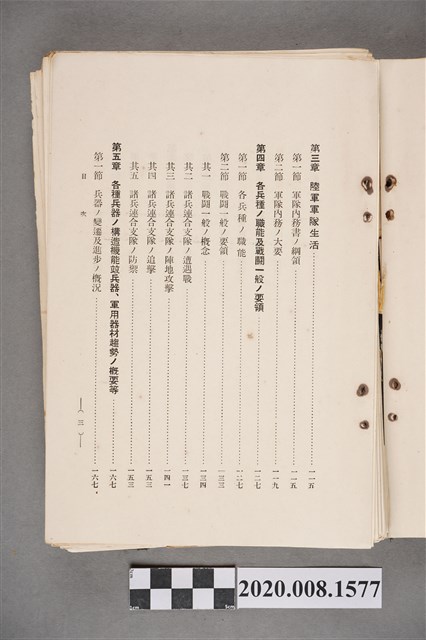 第三章 陸軍軍隊生活……一一五
第一節 軍隊內務書ノ綱領……一一五
第二節 軍隊內務ノ大要……一一九
第四章 各兵種ノ職能及戰鬪一般ノ要領……一二七
第一節 各兵種ノ職能……一二七
第二節 戰鬪一般ノ要領……一三三
其一 戰鬪一般ノ概念……一三四
其二 諸兵連合支隊ノ遭遇戰……一三七
其三 諸兵連合支隊ノ陣地攻擊……一四一
其四 諸兵連合支隊ノ追擊……一五三
其五 諸兵連合支隊ノ防禦……一五三
第五章 各種兵器ノ構造機能竝兵器、軍用器材趨勢ノ概要等……一六七
第一節 兵器ノ變遷及進步ノ概況……一六七
目次
三
2020.008.1577